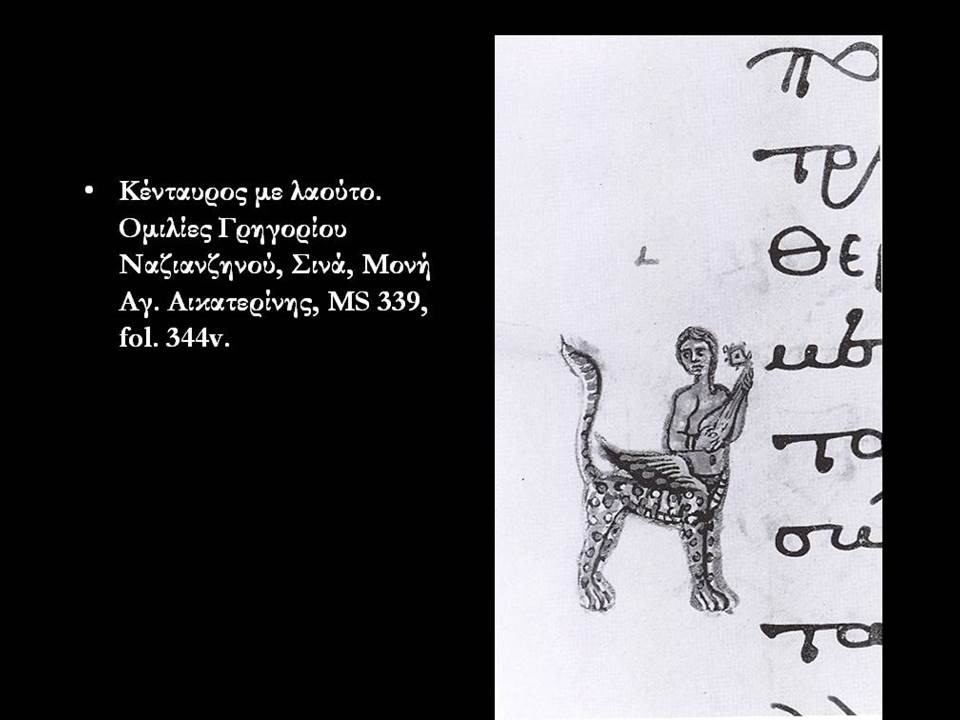 • Κένταυρος με λαούτο.
Ομιλίες Γρηγορίου
Ναζιανζηνού, Σινά, Μονή
Αγ. Αικατερίνης, MS 339,
fol. 344v.
πο
τρ
θερ
κβ
το
σω
τα